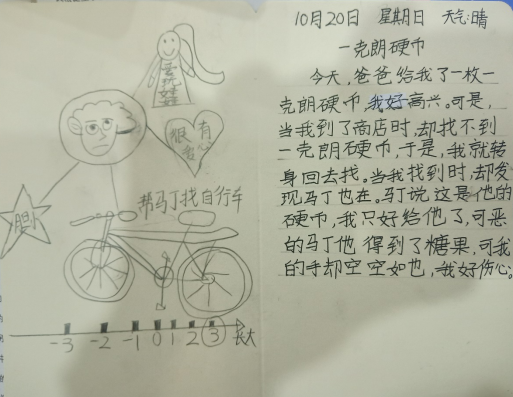 10月20日 星期日 天气:晴
一克朗硬币
今天,爸爸给我了一枚一
克朗硬币,我好高兴。可是,
当我到了商店时,却找不到
一克朗硬币,于是,我就转
身回去找。当我找到时,却发
现马丁也在。马丁说这是他的
硬币,我只好给他了,可恶
的马丁他得到了糖果,可我
的手却空空如也,我好伤心。
很有
爱心
帮马丁找自行车
-3 -2 -1 0 1 2 3 长大